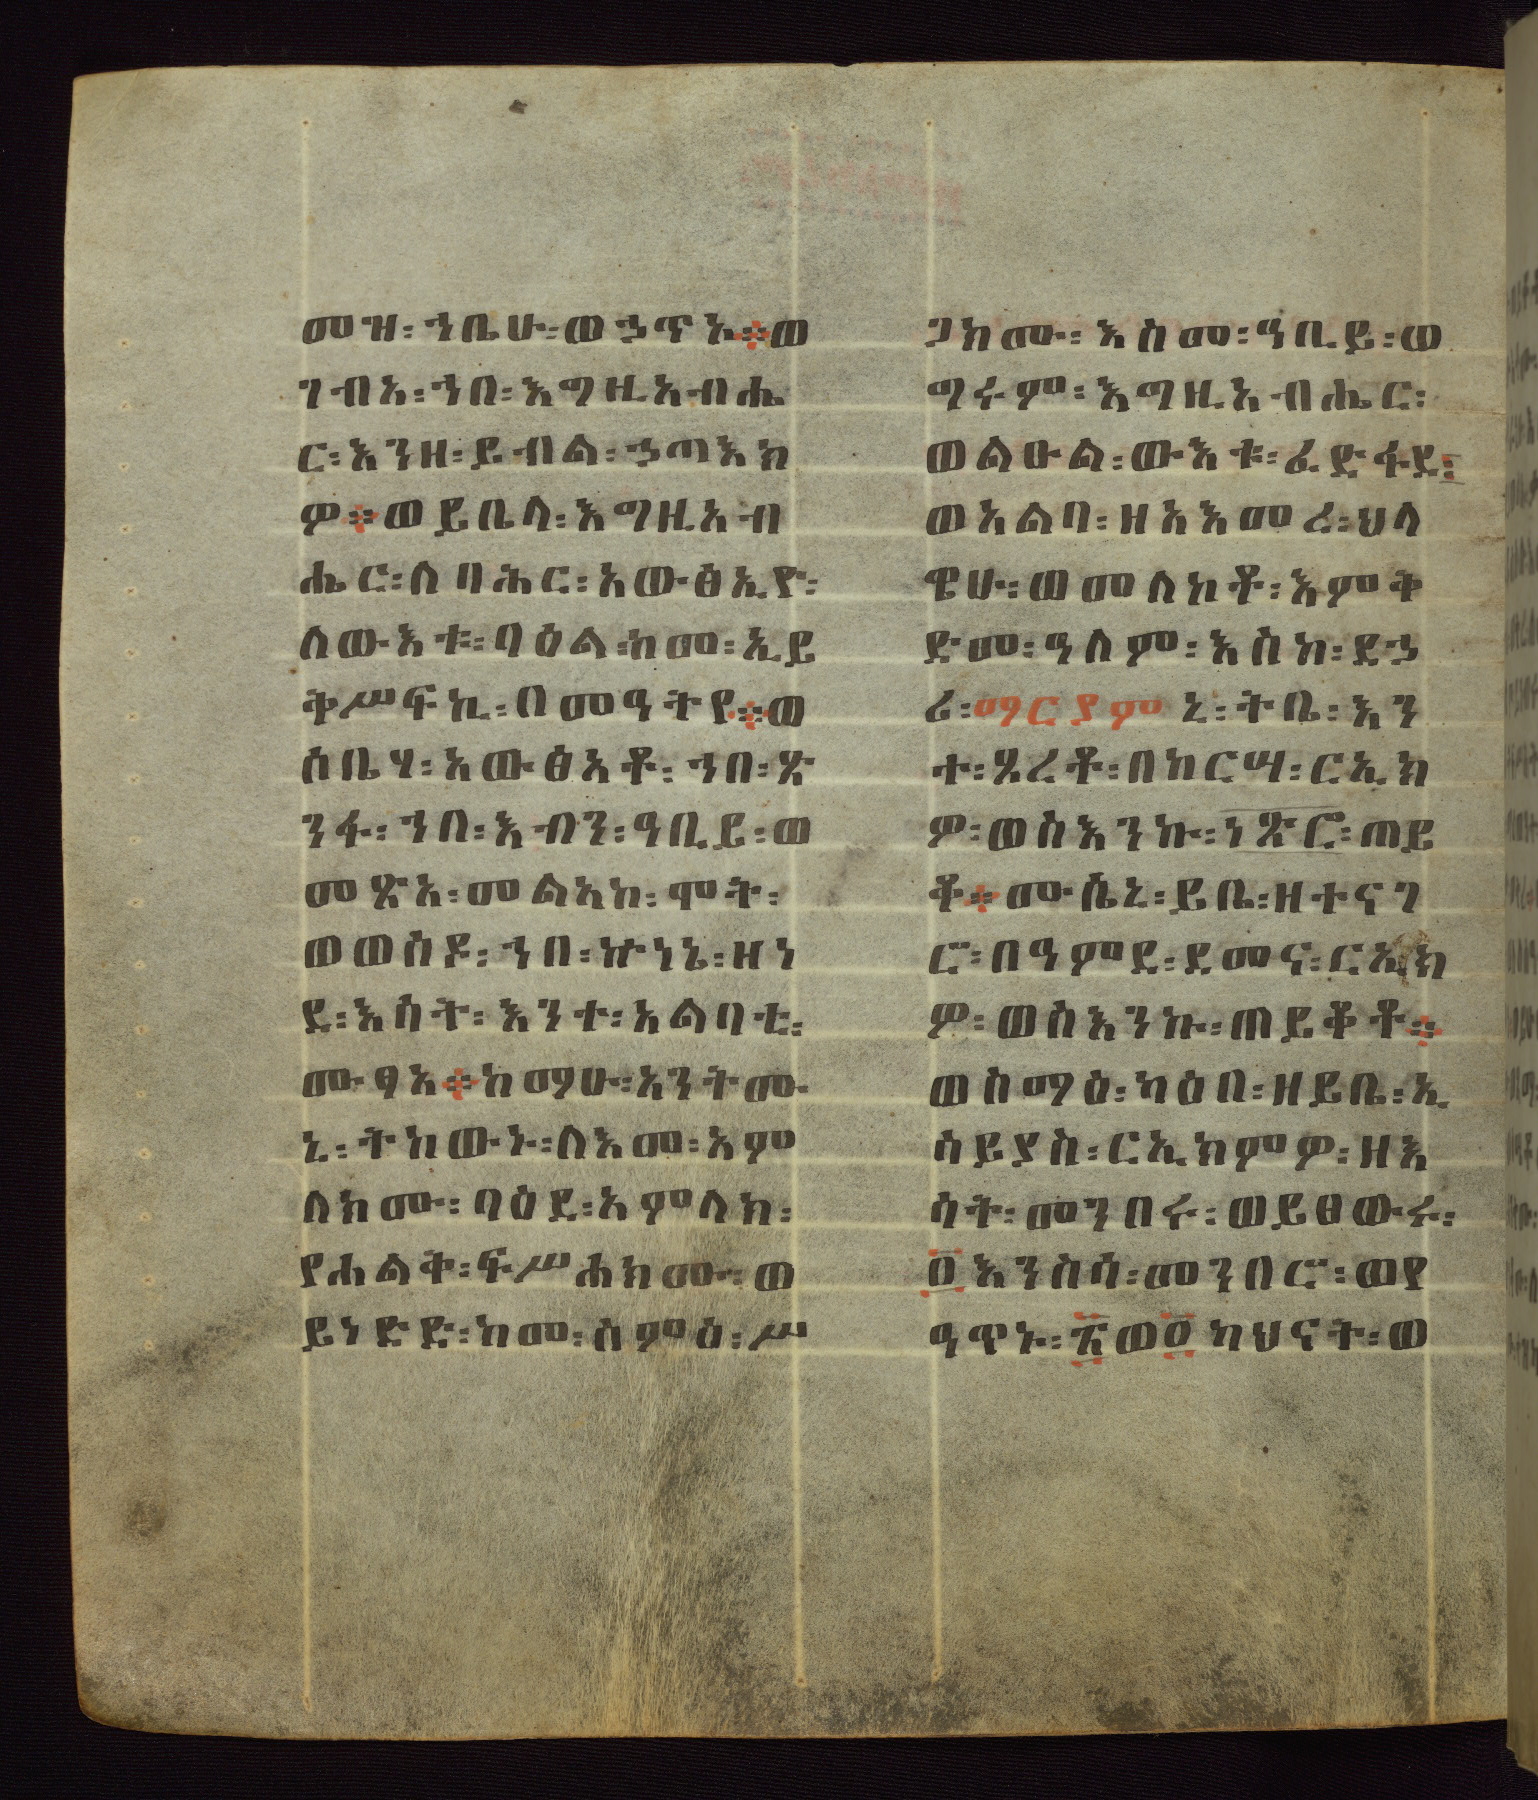 መዝ፡ ኀቤሁ፡ ወኃጥአ፨ ወ
ገብአ፡ ኀበ፡ እግዚአብሔ
ር፡ እንዘ፡ ይብል፡ ኃጣእክ
ዎ፨ ወይቤላ፡ እግዚአብ
ሔር፡ ለባሕር፡ አውፅኢዮ፡
ለውእቱ፡ ባዕል፡ ከመ፡ ኢይ
ቅሥፍኪ፡ በመዓትየ፨ ወ
ሰቤሃ፡ አውፅአቶ፡ ኀበ፡ ጽ
ንፋ፡ ኀበ፡ እብን፡ ዓቢይ፡ ወ
መጽአ፡ መልአከ፡ ሞት፡
ወወሰዶ፡ ኀበ፡ ኵነኔ፡ ዘነ
ደ፡ እሳት፡ እንተ፡ አልባቲ፡
ሙፃአ፨ ከማሁ፡ አንትሙ
ኒ፡ ትከውኑ፡ ለእመ፡ አም
ለክሙ፡ ባዕደ፡ አምላክ፡
የሐልቅ፡ ፍሥሐክሙ፡ ወ
ይነድድ፡ ከመ፡ ሰምዕ፡ ሥ
ጋክሙ፡ እስመ፡ ዓቢይ፡ ወ
ግሩም፡ እግዚአብሔር፡
ወልዑል፡ ውእቱ፡ ፈድፋደ፡
ወአልባ፡ ዘአእመረ፡ ህላ
ዌሁ፡ ወመለኮቶ፡ እምቅ
ድመ፡ ዓለም፡ እስከ፡ ደኃ
ሪ፡ ማርያምኒ፡ ትቤ፡ እን
ተ፡ ጾረቶ፡ በከርሣ፡ ርኢክ
ዎ፡ ወስእንኩ፡ ነጽሮ፡ ጠይ
ቆ፨ ሙሴኒ፡ ይቤ፡ ዘተናገ
ሮ፡ በዓምደ፡ ደመና፡ ርኢክ
ዎ፡ ወስእንኩ፡ ጠይቆቶ፨
ወስማዕ፡ ካዕበ፡ ዘይቤ፡ ኢ
ሳይያስ፡ ርኢክምዎ፡ ዘእ
ሳት፡ መንበሩ፡ ወይፀውሩ፡
፬እንስሳ፡ መንበሮ፡ ወየ
ዓጥኑ፡ ፳ወ፬ካህናት፡ ወ